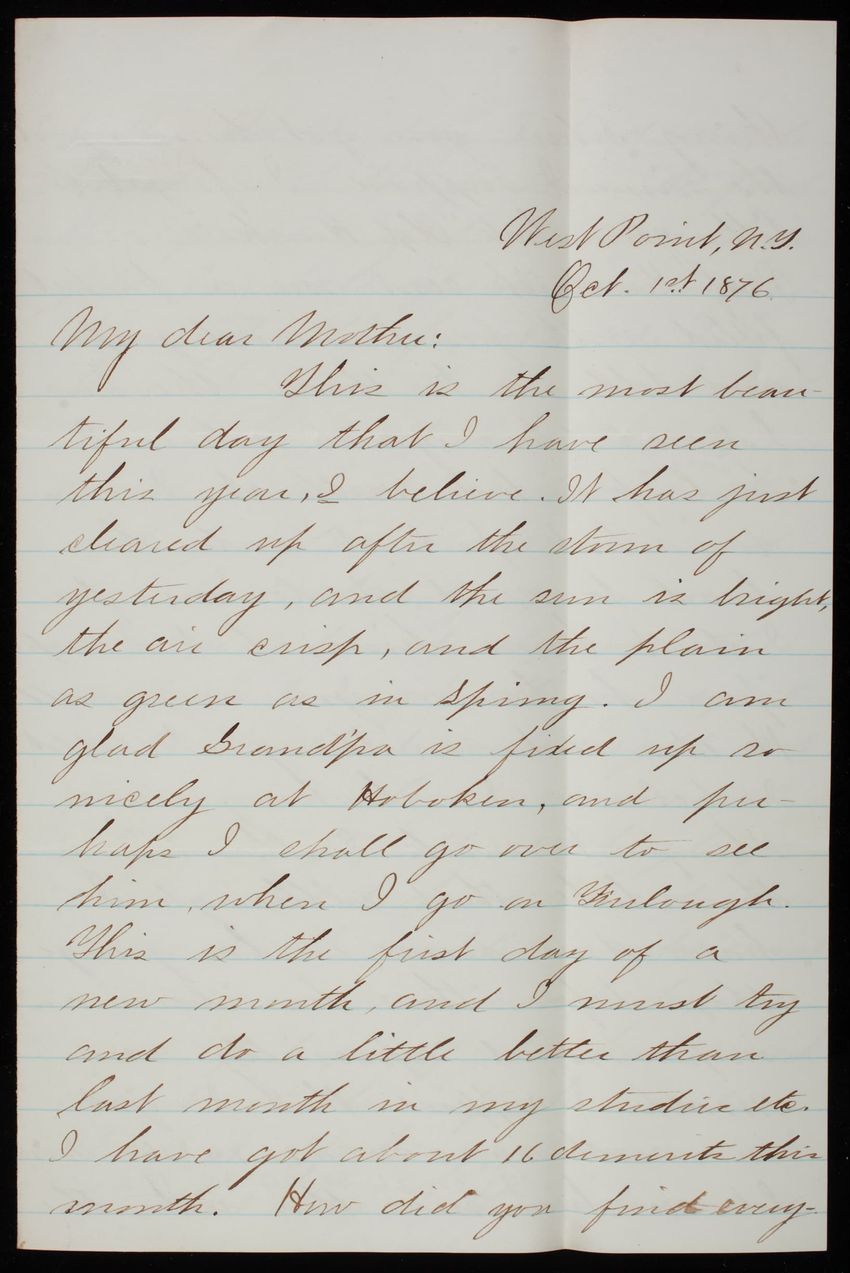 West Point, N.Y.
Oct. 1st 1876.
My dear Mother:
This is the most beau-
tiful day that I have seen
this year, I believe. It has just
cleared up after the storm of
yesterday, and the sun is bright,
the air crisp, and the plain
as green as in Spring. I am
glad Grandpa is fixed up so
nicely at Hoboken, and per-
haps I shall go over to see
him, when I go on Furlough.
This is the first day of a
new month, and I must try
and do a little better than
last month in my studies etc.
I have got about 16 demerits this
month. How did you find every-